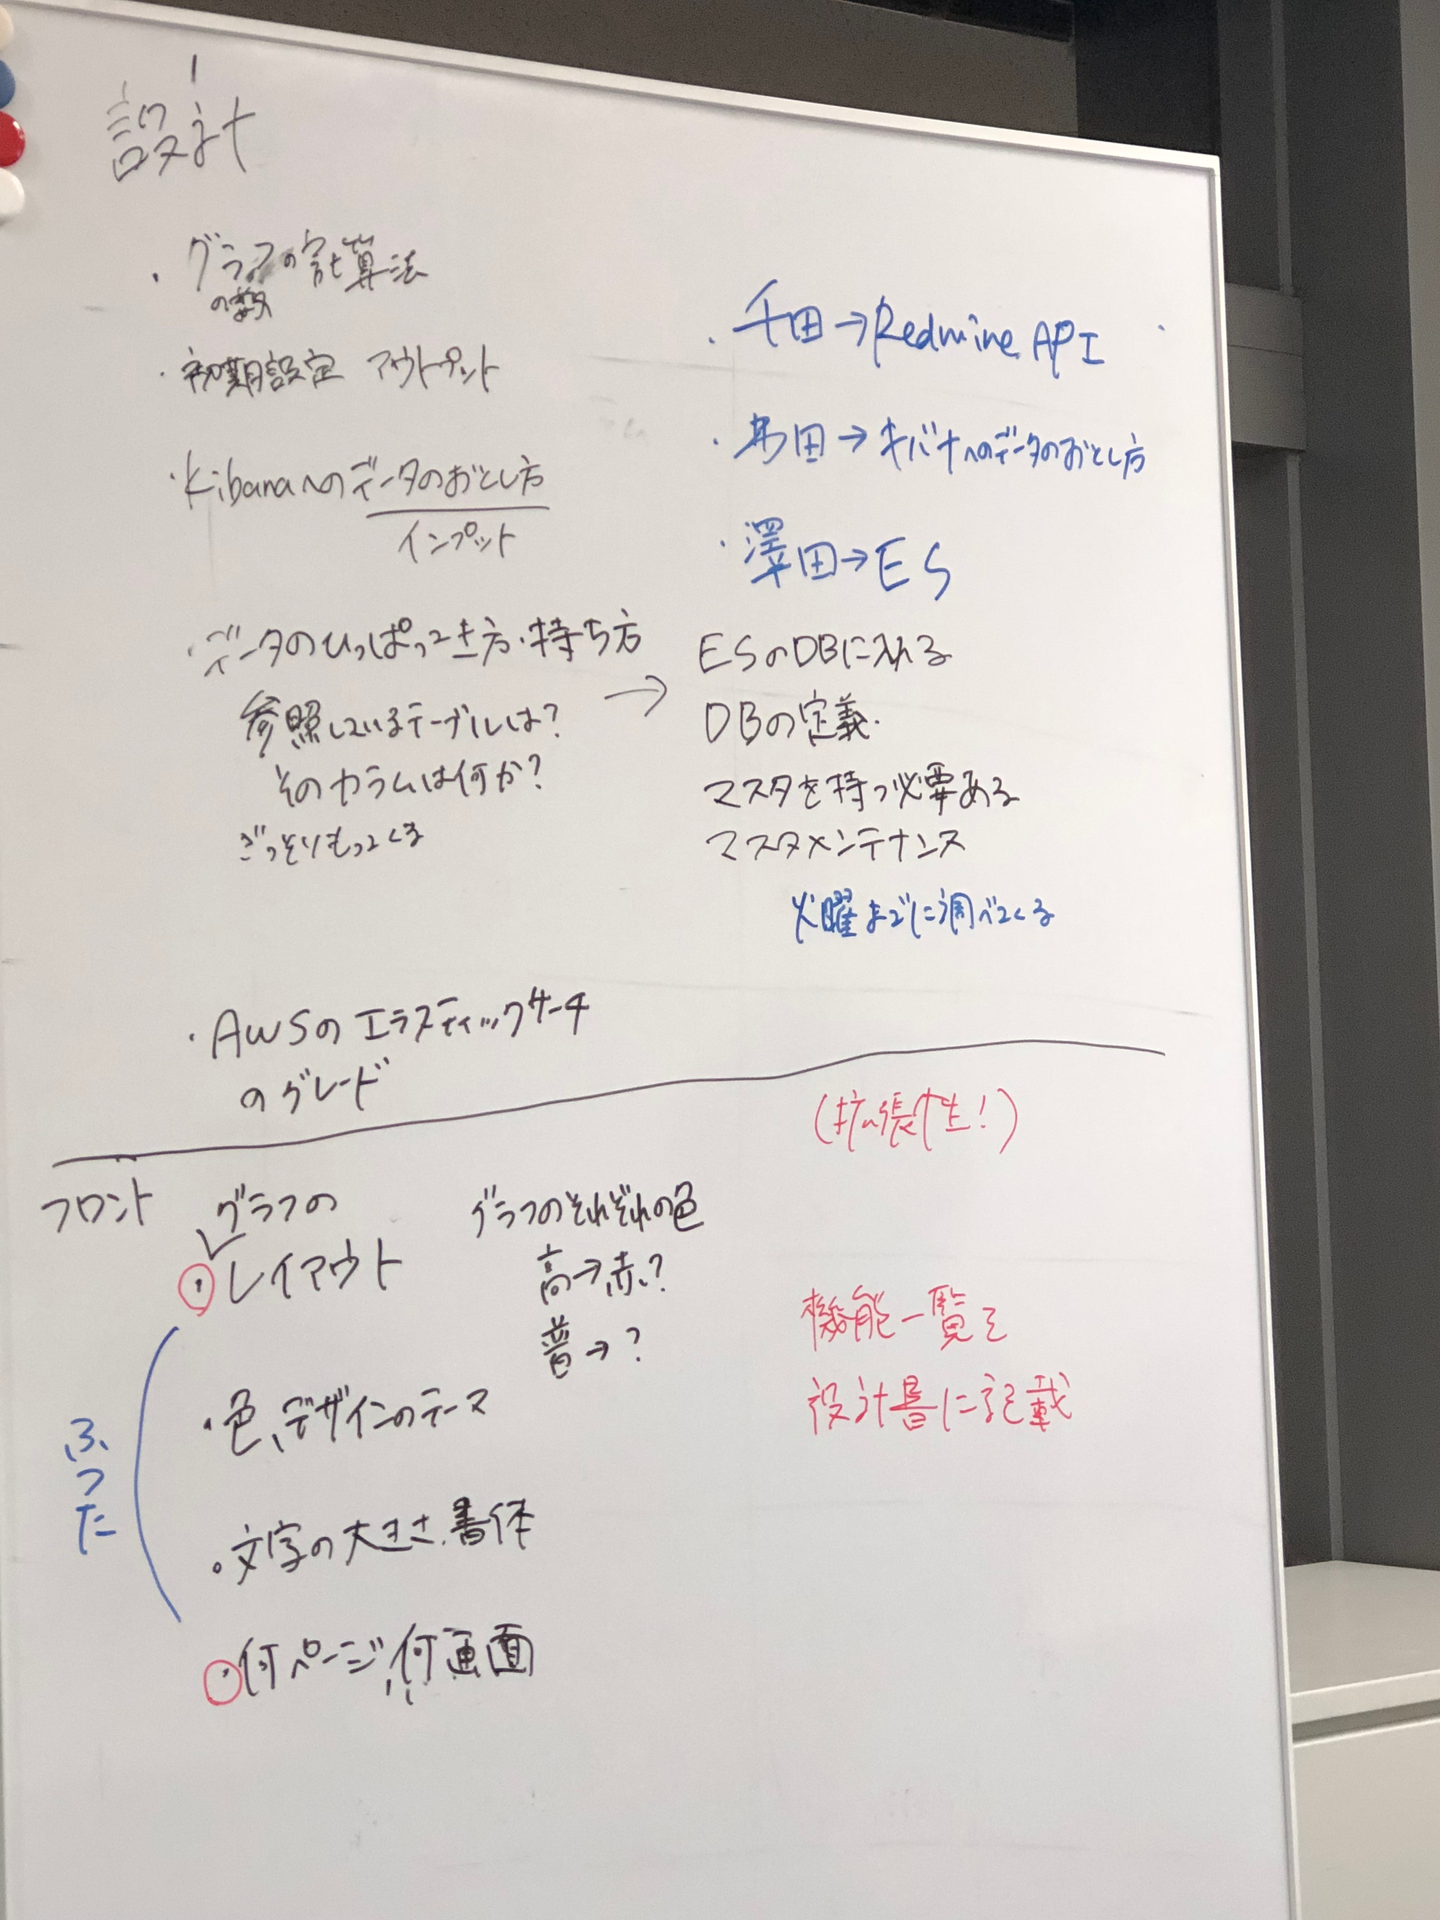 設計
・グラフの計算法
の数
・初期設定 アウトプット
・Kibanaへのデータのおとし方
インプット
・データのひっぱってき方・持ち方
参照しているテーブルは?
そのカラムは何か?
ごっそりもってくる
・AWSのエラスティックサーチ
のグレード
・千田→Redmine API
・田→キバナへのデータのおとし方
・澤田→ES
→ ESのDBに入れる
DBの定義.
マスタを持つ必要ある
マスタメンテナンス
火曜までに調べてくる
(拡張性!)
フロント
グラフの
・レイアウト
グラフのそれぞれの色
高→赤?
普→?
ふつた
・色、デザインのテーマ
・文字の大きさ、書体
・何ページ、何画面
機能一覧を
設計書に記載